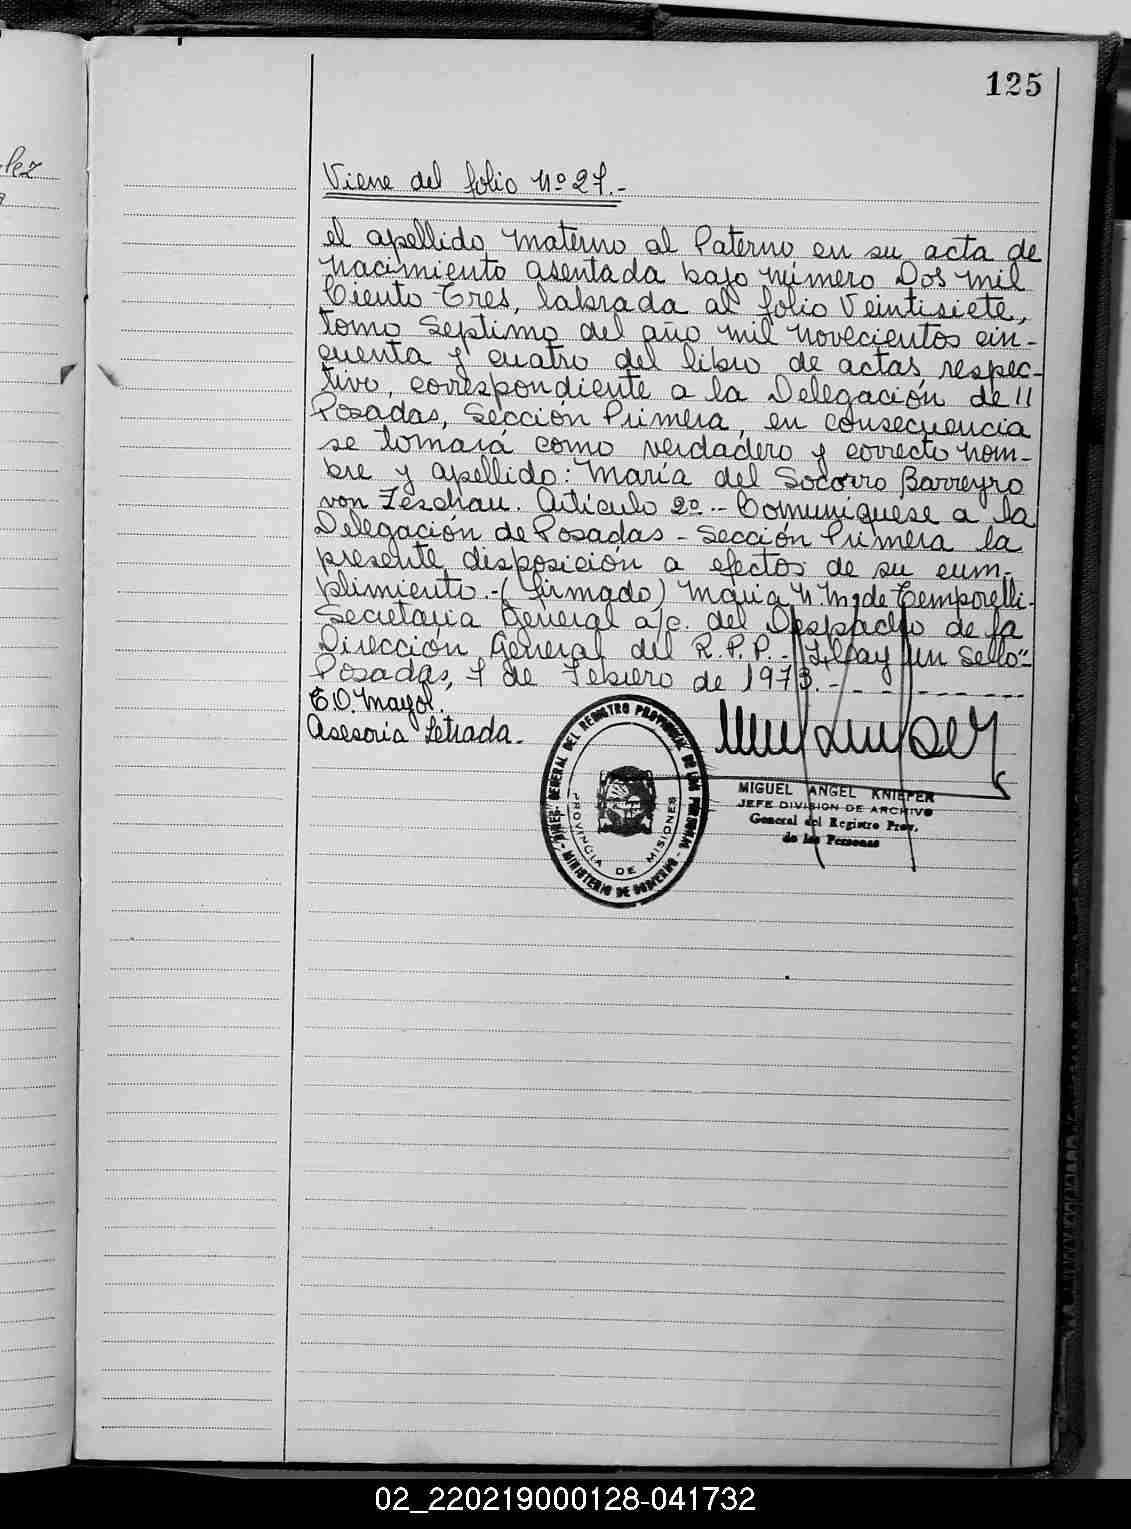 125
lez
Viene del folio Nº 27.-
el apellido materno al Paterno en su acta de
nacimiento asentada bajo número Dos mil
Ciento Tres, labrada al folio Veintisiete,
tomo Septimo del año mil novecientos cin-
cuenta y cuatro del libro de actas respec-
tivo, correspondiente a la Delegación de //
Posadas, Sección Primera, en consecuencia
se tomará como verdadero y correcto nom-
bre y apellido: María del Socorro Barreyro
von Zeschau. Artículo 2º.- Comuníquese a la
Delegación de Posadas - Sección Primera la
presente disposición a efectos de su cum-
plimiento.-(firmado) Maria N. M. de Temporelli-
Secretaria General a/c. del Despacho de la
Dirección General del R.P.P.- "Hay un Sello"-
Posadas, 7 de Febrero de 1973.-
E.O. Mayol.
Asesoria Letrada.-
DIREC. GENERAL DEL REGISTRO PROVINCIAL DE LAS PERSONAS
PROVINCIA DE MISIONES
- MINISTERIO DE GOBIERNO -
MIGUEL ANGEL KNIEPER
JEFE DIVISION DE ARCHIVO
General del Registro Prov.
de las Personas
02_220219000128-041732